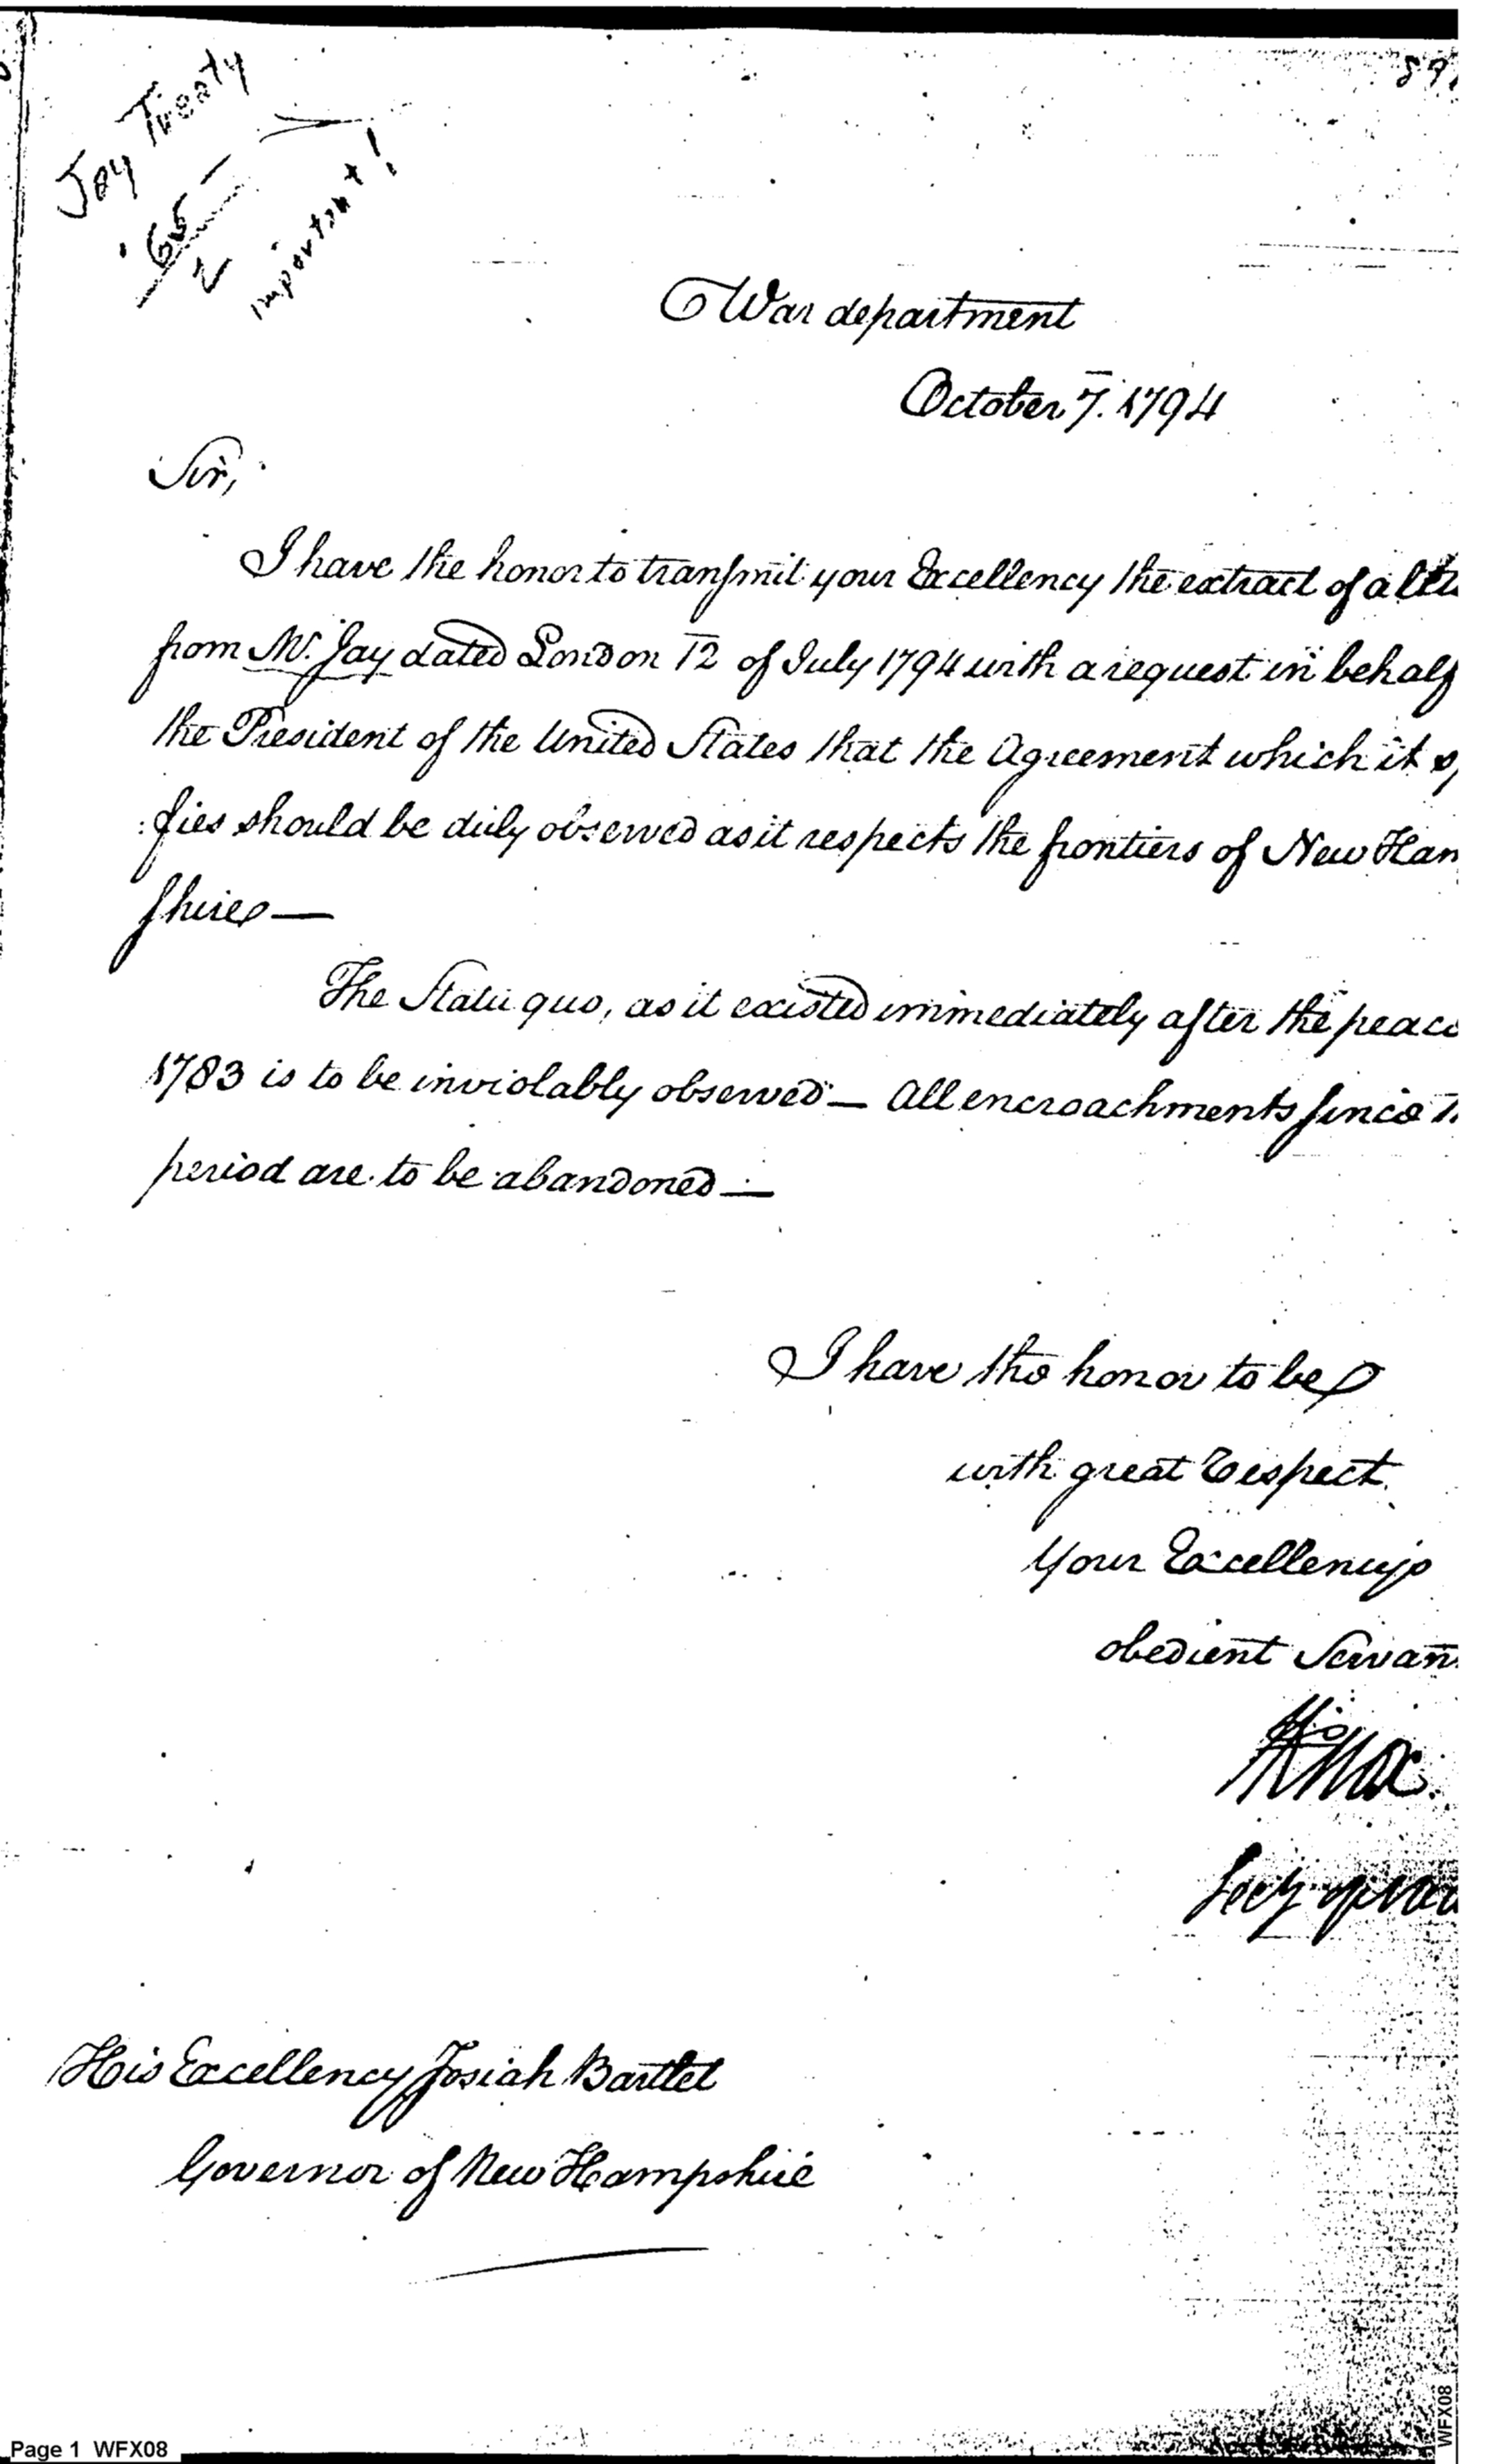 Jay Treaty
'65 –
2
important!
89
War department
October 7. 1794
Sir,
I have the honor to transmit your Excellency the extract of a
from Mr. Jay dated London 12 of July 1794 with a request in behalf
the President of the United States that the Agreement which it
:fies should be duly observed as it respects the frontiers of New Ham
shire —
The Statu quo, as it existed immediately after the peace
1783 is to be inviolably observed — All encroachments since
period are to be abandoned —
I have the honor to be
with great respect
Your Excellency's
obedient Servan
HKnox.
Secy of War
His Excellency Josiah Bartlet
Governor of New Hampshire
Page 1 WFX08
WFX08